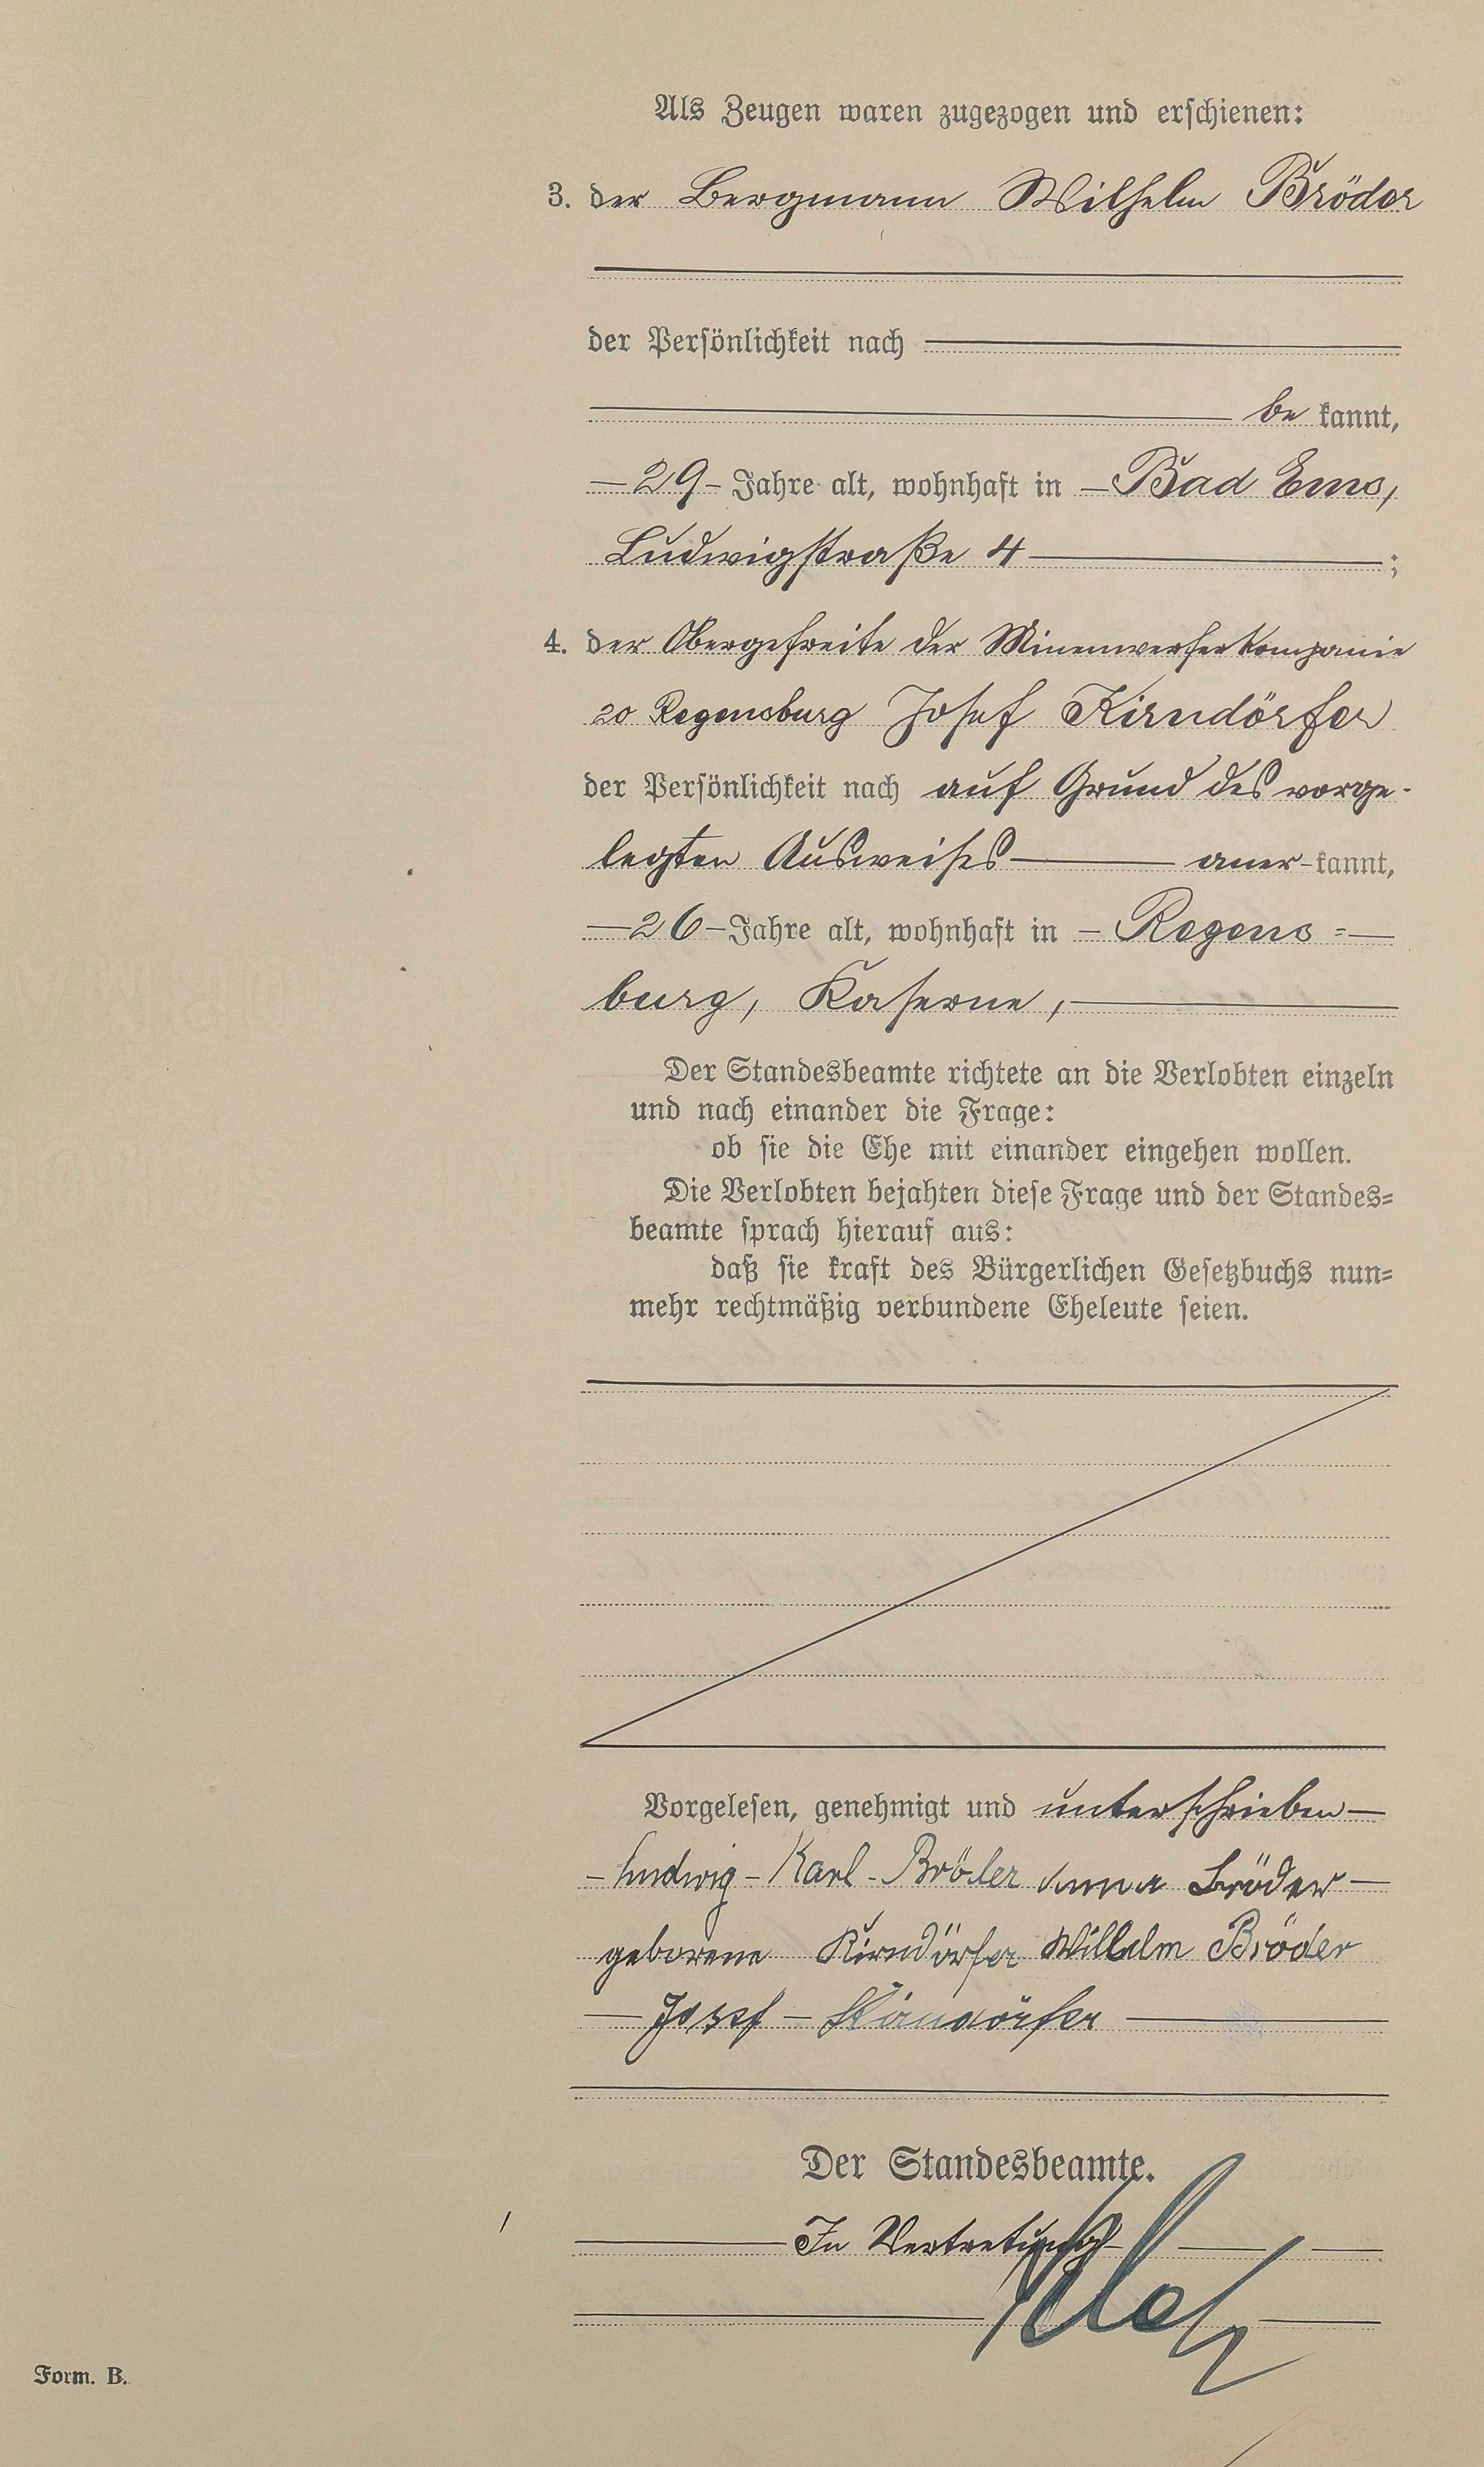 Als Zeugen waren zugezogen und erschienen:
3. der Bergmann Wilhelm Bröder
der Persönlichkeit nach
be kannt,
29 Jahre alt, wohnhaft in Bad Ems,
Ludwigstraße 4 ;
4. der Obergefreite der Minenwerferkompanie
20 Regensburg Josef Kirndörfer
der Persönlichkeit nach auf Grund des vorge-
legten Ausweises aner-kannt,
26 Jahre alt, wohnhaft in Regens=
burg, Kaserne,
Der Standesbeamte richtete an die Verlobten einzeln
und nach einander die Frage:
ob sie die Ehe mit einander eingehen wollen.
Die Verlobten bejahten diese Frage und der Standes=
beamte sprach hierauf aus:
daß sie kraft des Bürgerlichen Gesetzbuchs nun=
mehr rechtmäßig verbundene Eheleute seien.
Vorgelesen, genehmigt und unterschrieben
Ludwig-Karl-Bröder Anna Bröder
geborene Kirndörfer Wilhelm Bröder
Josef Kirndörfer
Der Standesbeamte.
In Vertretung
Form. B.